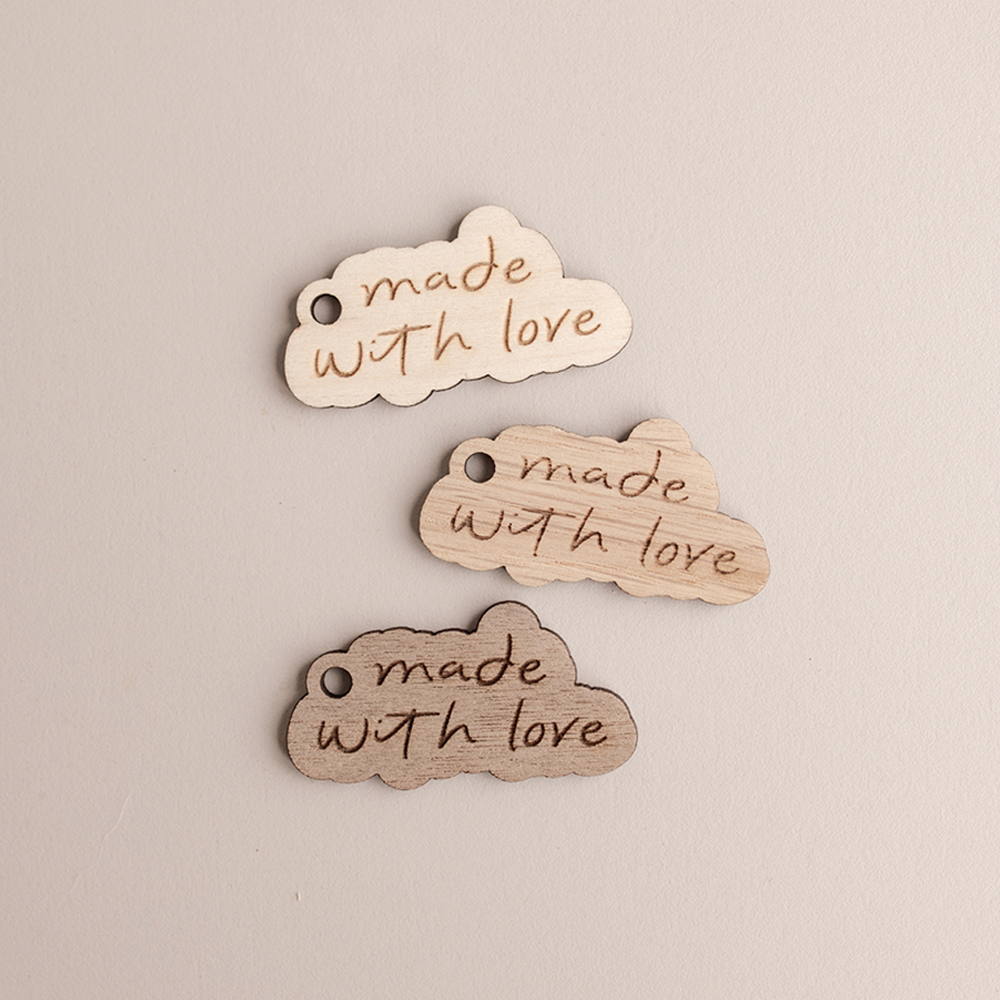 made
with love
made
with love
made
with love